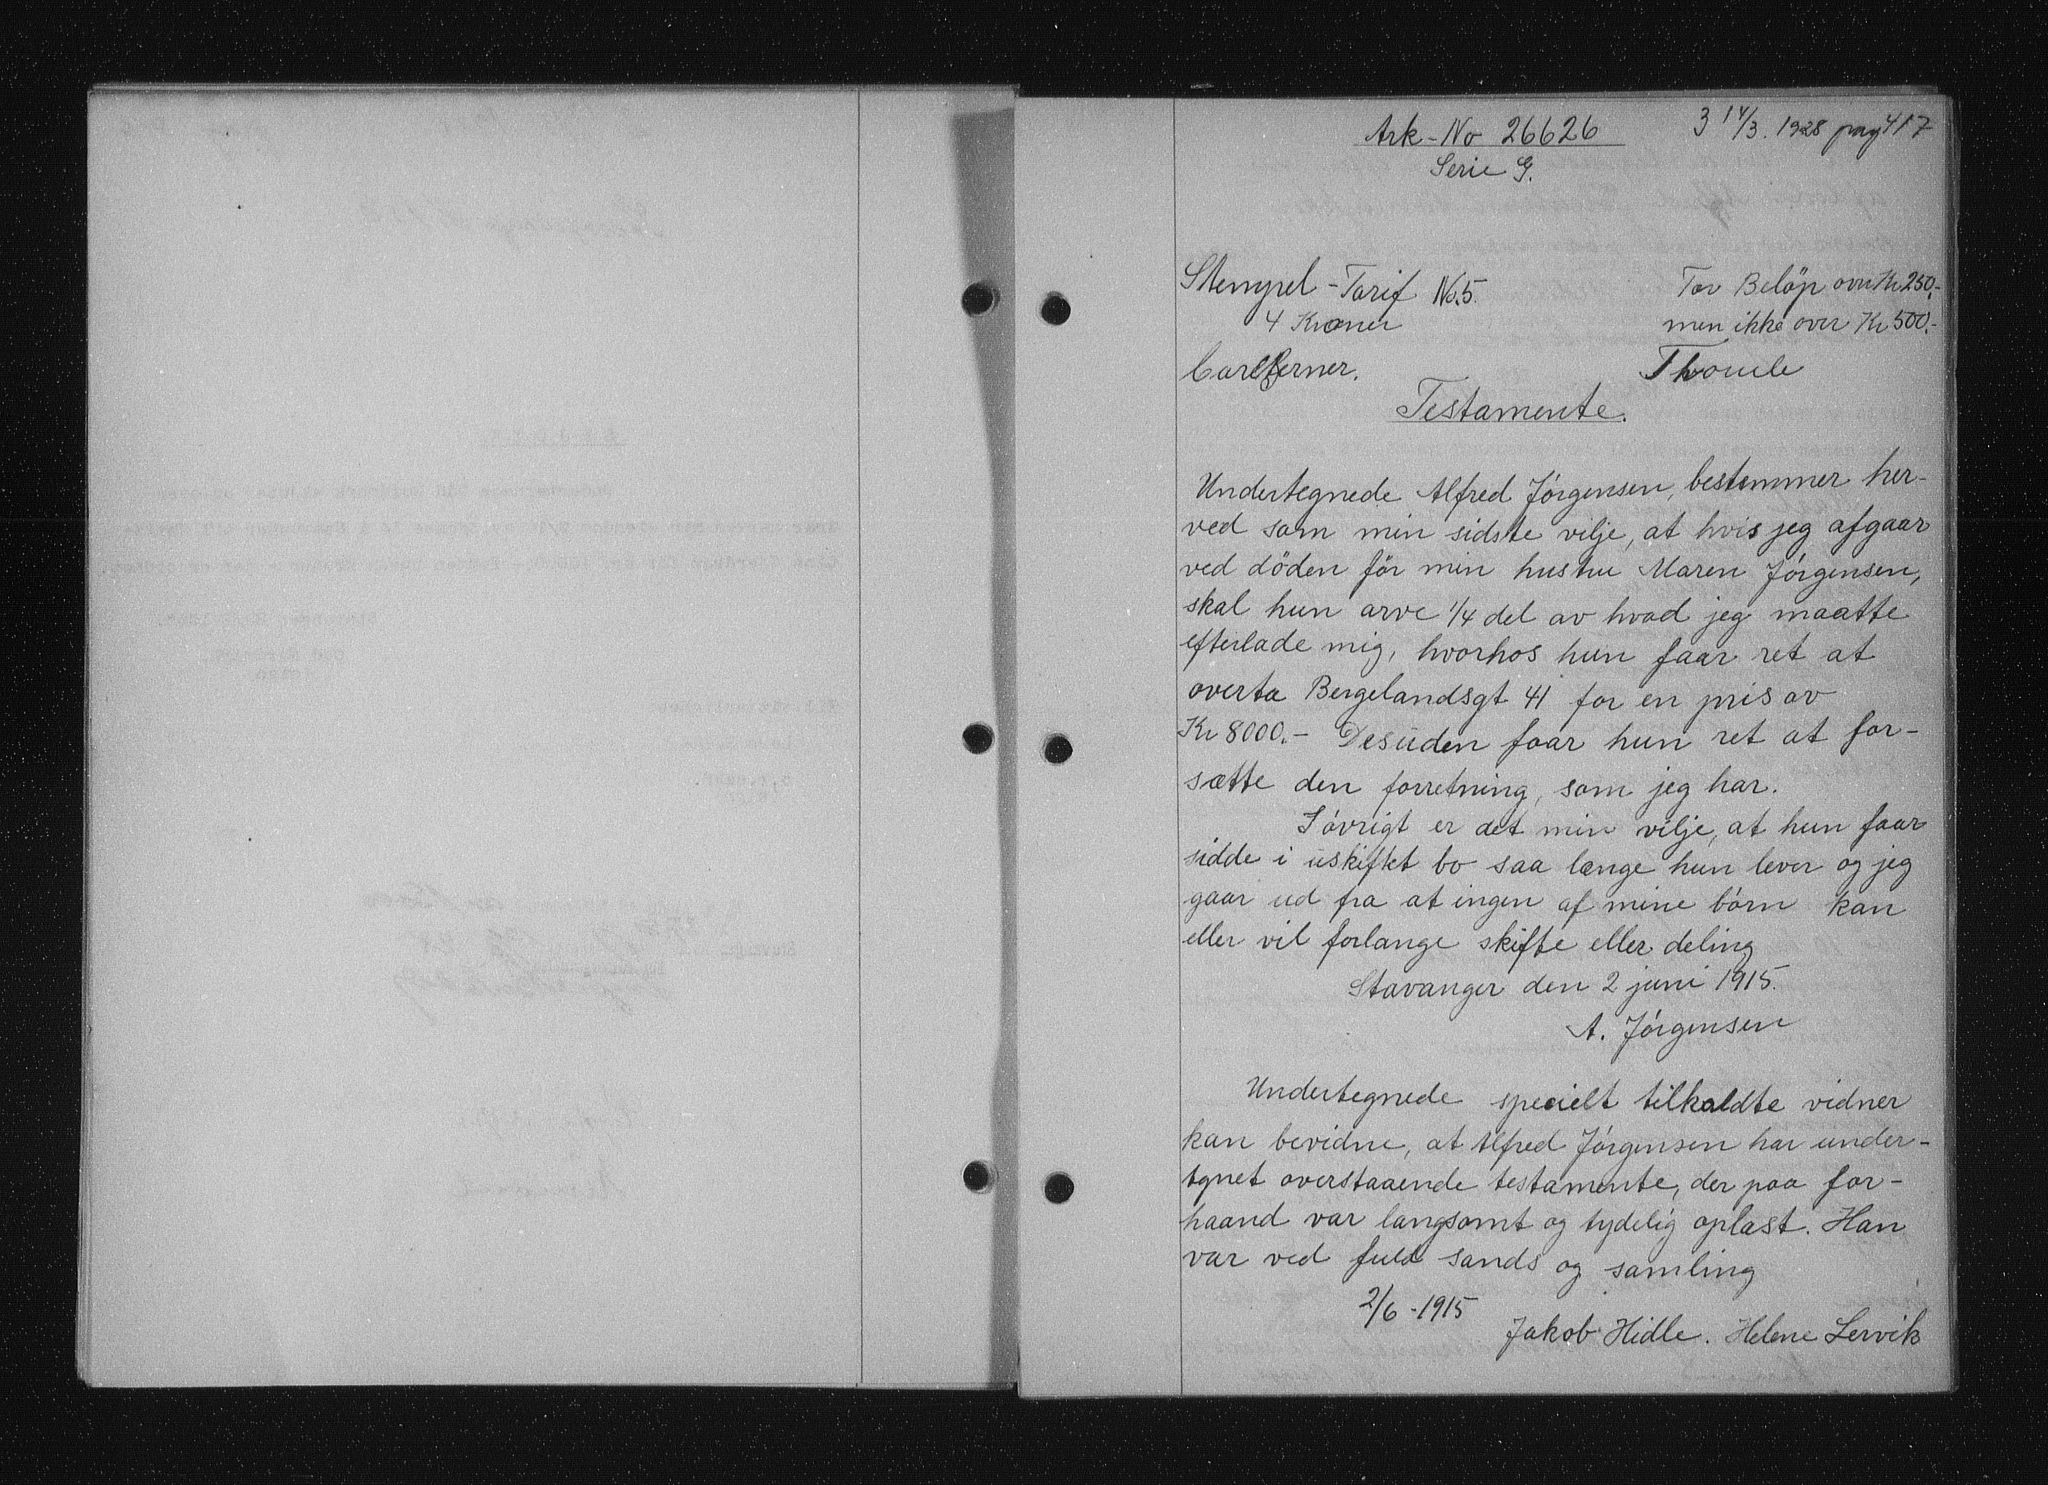 3 14/3. 1928 pag 417
Ark-No 26626
Serie G.
Stempel-Tarif No.5.
4 Kroner
For Beløp over Kr 250.-
men ikke over Kr 500.-
Carl Berner.
Thomle
Testamente.
Undertegnede Alfred Jørgensen, bestemmer her-
ved som min sidste vilje, at hvis jeg afgaar
ved døden før min hustru Maren Jørgensen,
skal hun arve 1/4 del av hvad jeg maatte
efterlade mig, hvorhos hun faar ret at
overta Bergelandsgt 41 for en pris av
Kr 8000.- Desuden faar hun ret at for-
sætte den forretning, som jeg har.
I øvrigt er det min vilje, at hun faar
sidde i uskiftet bo saa længe hun lever og jeg
gaar ud fra at ingen af mine børn kan
eller vil forlange skifte eller deling
Stavanger den 2 juni 1915.
A. Jørgensen
Undertegnede specielt tilkaldte vidner
kan bevidne, at Alfred Jørgensen har under-
tgnet overstaaende testamente, der paa for-
haand var langsomt og tydelig oplæst. Han
var ved fuld sands og samling
2/6 - 1915
Jakob Hidle. Helene Lervik